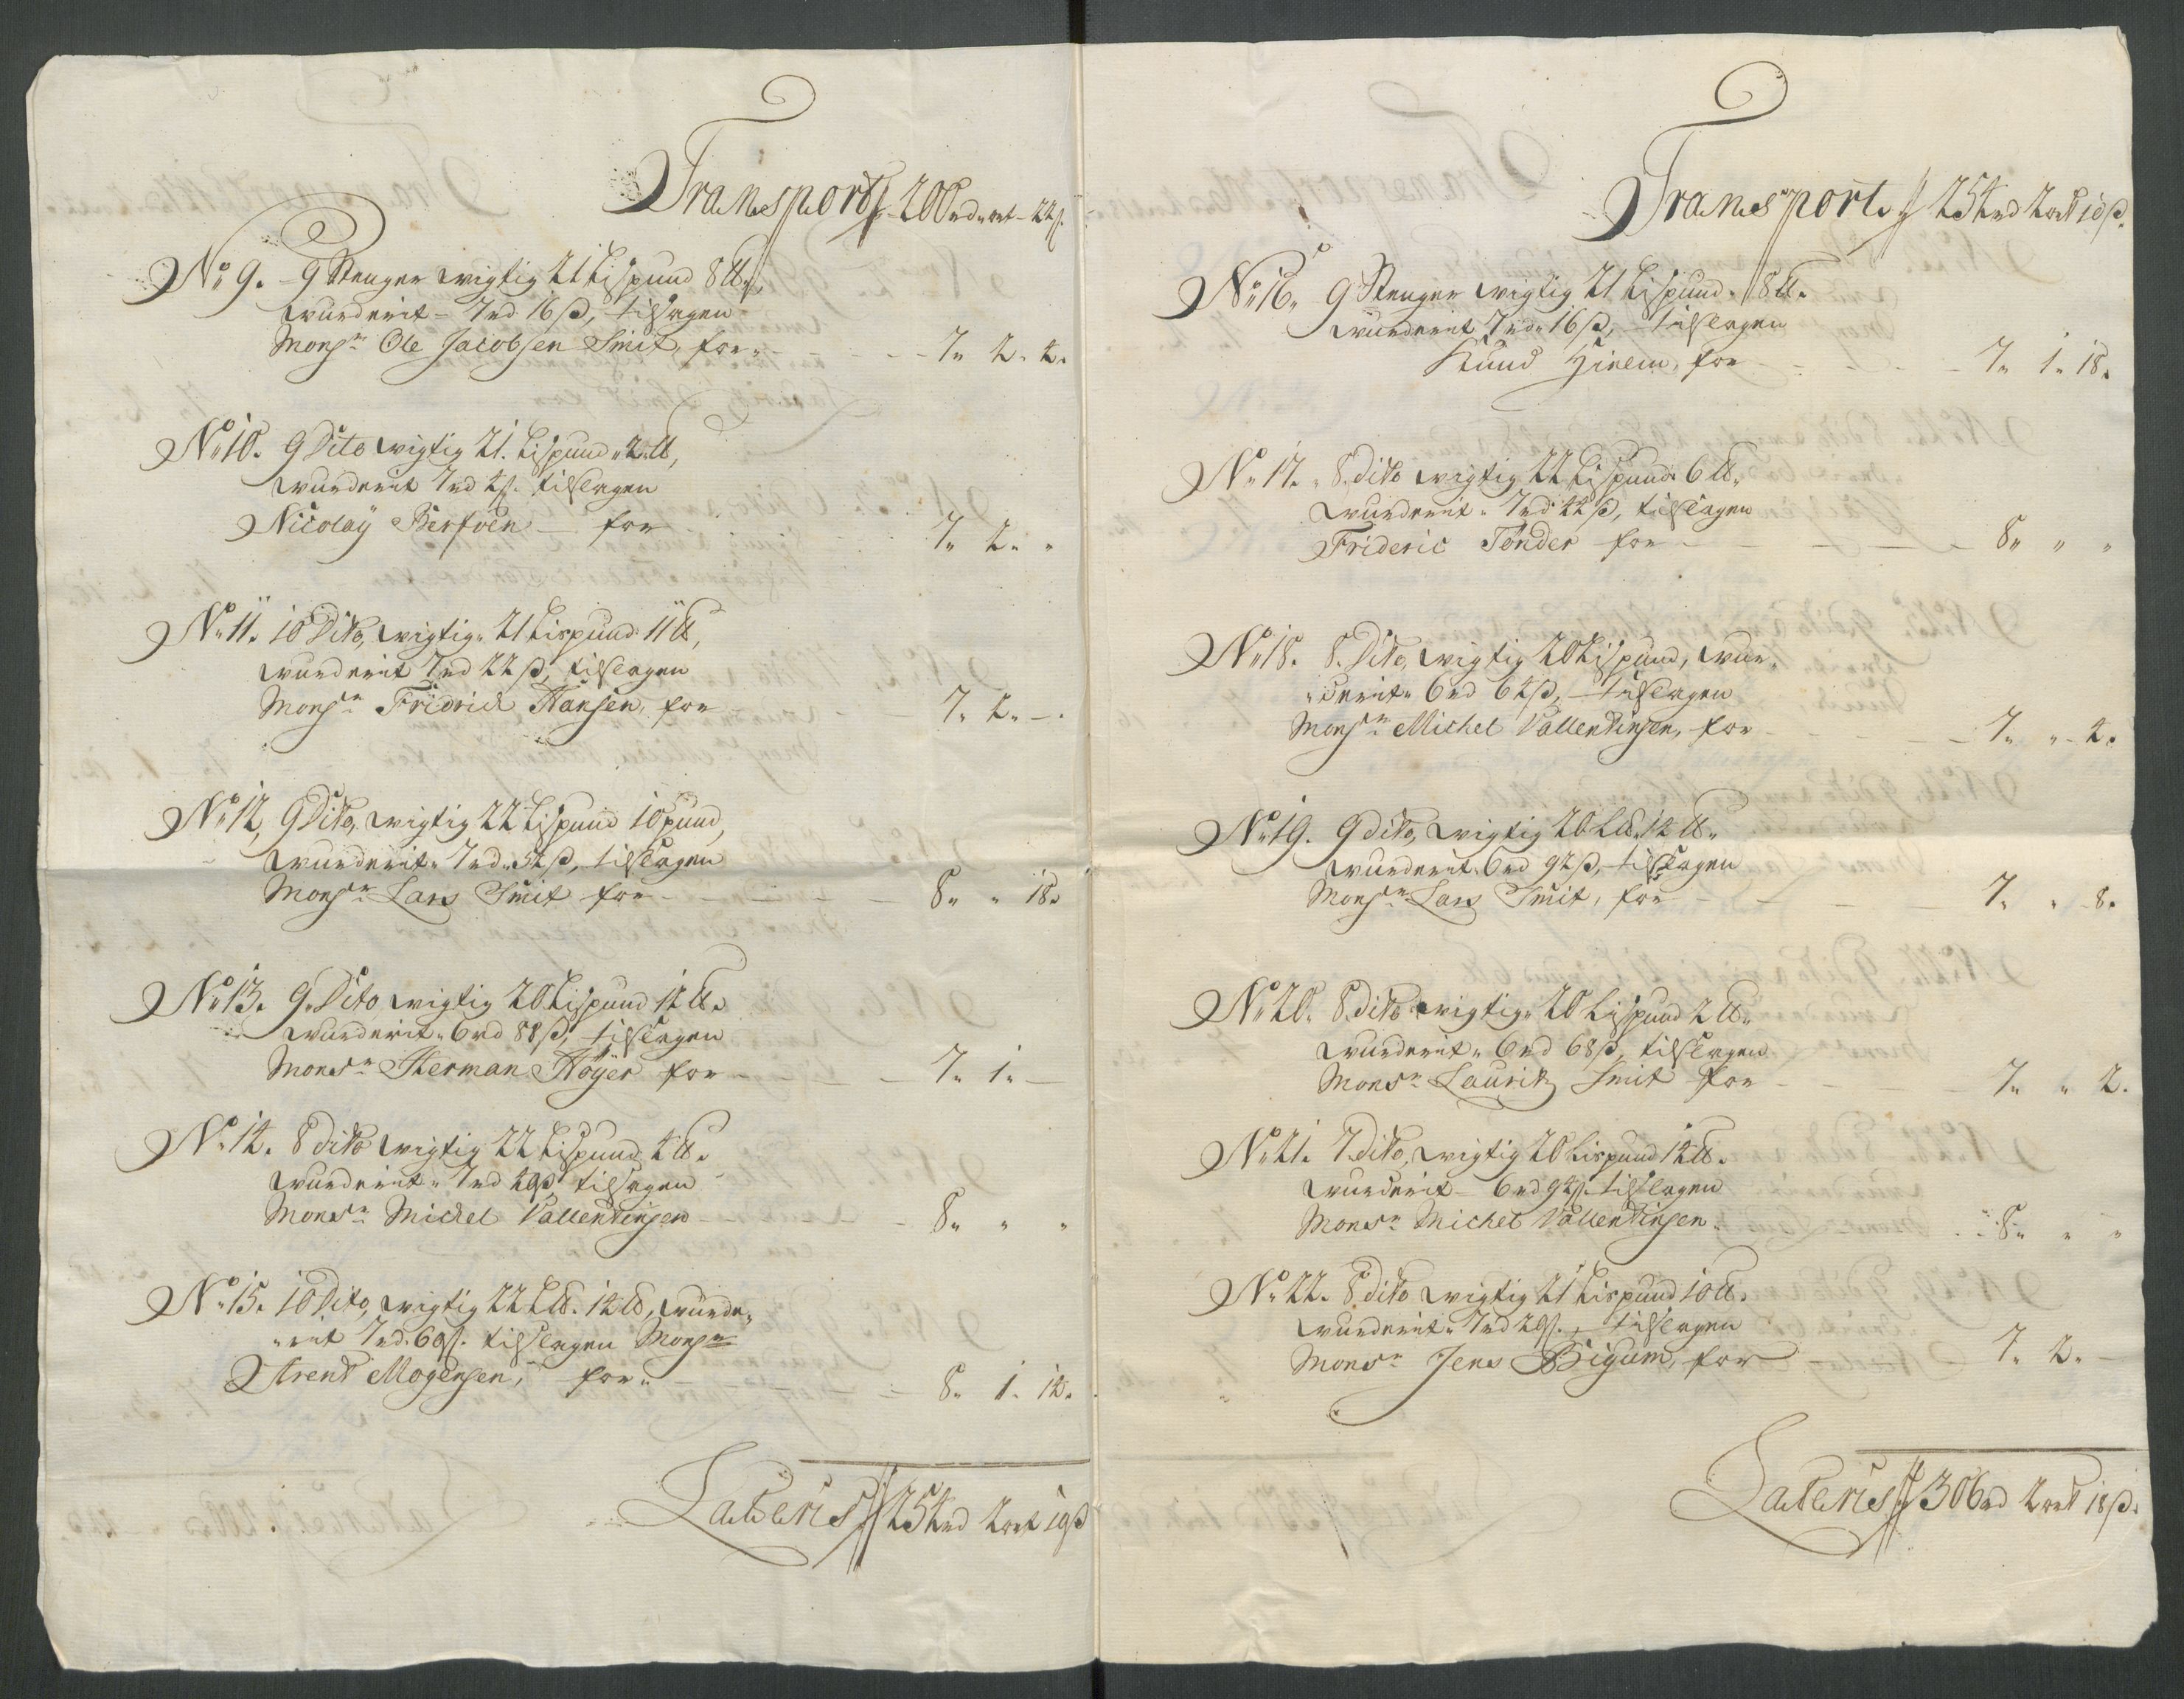 Transport 200rd "ort 22s.
No 9. 9 Stenger wigtig 21 Lispund 8 ℔,
wurderit 7rd 16 β, tilslagen
Monsr Ole Jacobsen Smit, for 7" 2" 4.
No 10. 9 Dito wigtig 21. Lispund 2 ℔,
wurderit 7rd 4s. tilslagen
Nicolaÿ for 7" 2" "
No 11. 10 Dito, wigtig 21 Lispund 11 ℔,
wurderit 7rd 22 β, tilslagen
Monsr Fridrich Hansen, for 7. 2. –.
No 12, 9 Dito, wigtig 22 Lispund 10 pund,
wurderit 7rd 52 β, tilslagen
Monsr Lars Smit for 8" " 18.
No 13. 9 Dito wigtig 20 Lispund 12 ℔.
wurderit 6rd 88 β, tilslagen
Monsr Herman Höyer for 7" 1" –
No 14. 8 dito wigtig 22 Lispund 4 ℔.
wurderit 7rd 40 β tilslagen
Monsr Michel Vallentinsen 8" " "
No 15. 10 Dito, wigtig 22 L℔. 14 ℔, wurde-
rit 7rd. 60s. tilslagen Monsr
Arent Mogensen, for 8" 1. 14.
Lateris 254rd 2ort 10 β
Transport 254rd 2ort 10 β.
No 16. 9 Stenger wigtig 21 Lispund 8 ℔.
wurderit 7rd 16 β, tilslagen
Knud for 7" 1" 18.
No 17. 8 dito wigtig 22 Lispund 6 ℔.
wurderit 7rd 44 β, tilslagen
Frideric Tönder for 8" " "
No 18. 8 Dito, wigtig 20 Lispund, wur-
derit 6rd 64 β, tilslagen
Monsr Michel Vallentinsen, for 7" " 4.
No 19. 9 dito, wigtig 20 L℔. 14 ℔.
wurderit 6rd 92 β, tilslagen
Monsr Lars Smit, for 7. " 8.
No 20. 8 dito wigtig 20 Lispund 2 ℔.
wurderit 6rd 68 β, tilslagen
Monsr Lauritz Smit for 7" " 2.
No 21. 7 dito, wigtig 20 Lispund 14 ℔.
wurderit 6rd 92s. tilslagen
Monsr Michel Vallentinsen 8" " "
No 22. 8 dito wigtig 21 Lispund 10 ℔.
wurderit 7rd 20s., tilslagen
Monsr Jens Bigum, for 7" 2" –
Lateris 306rd 2ort 18 β.